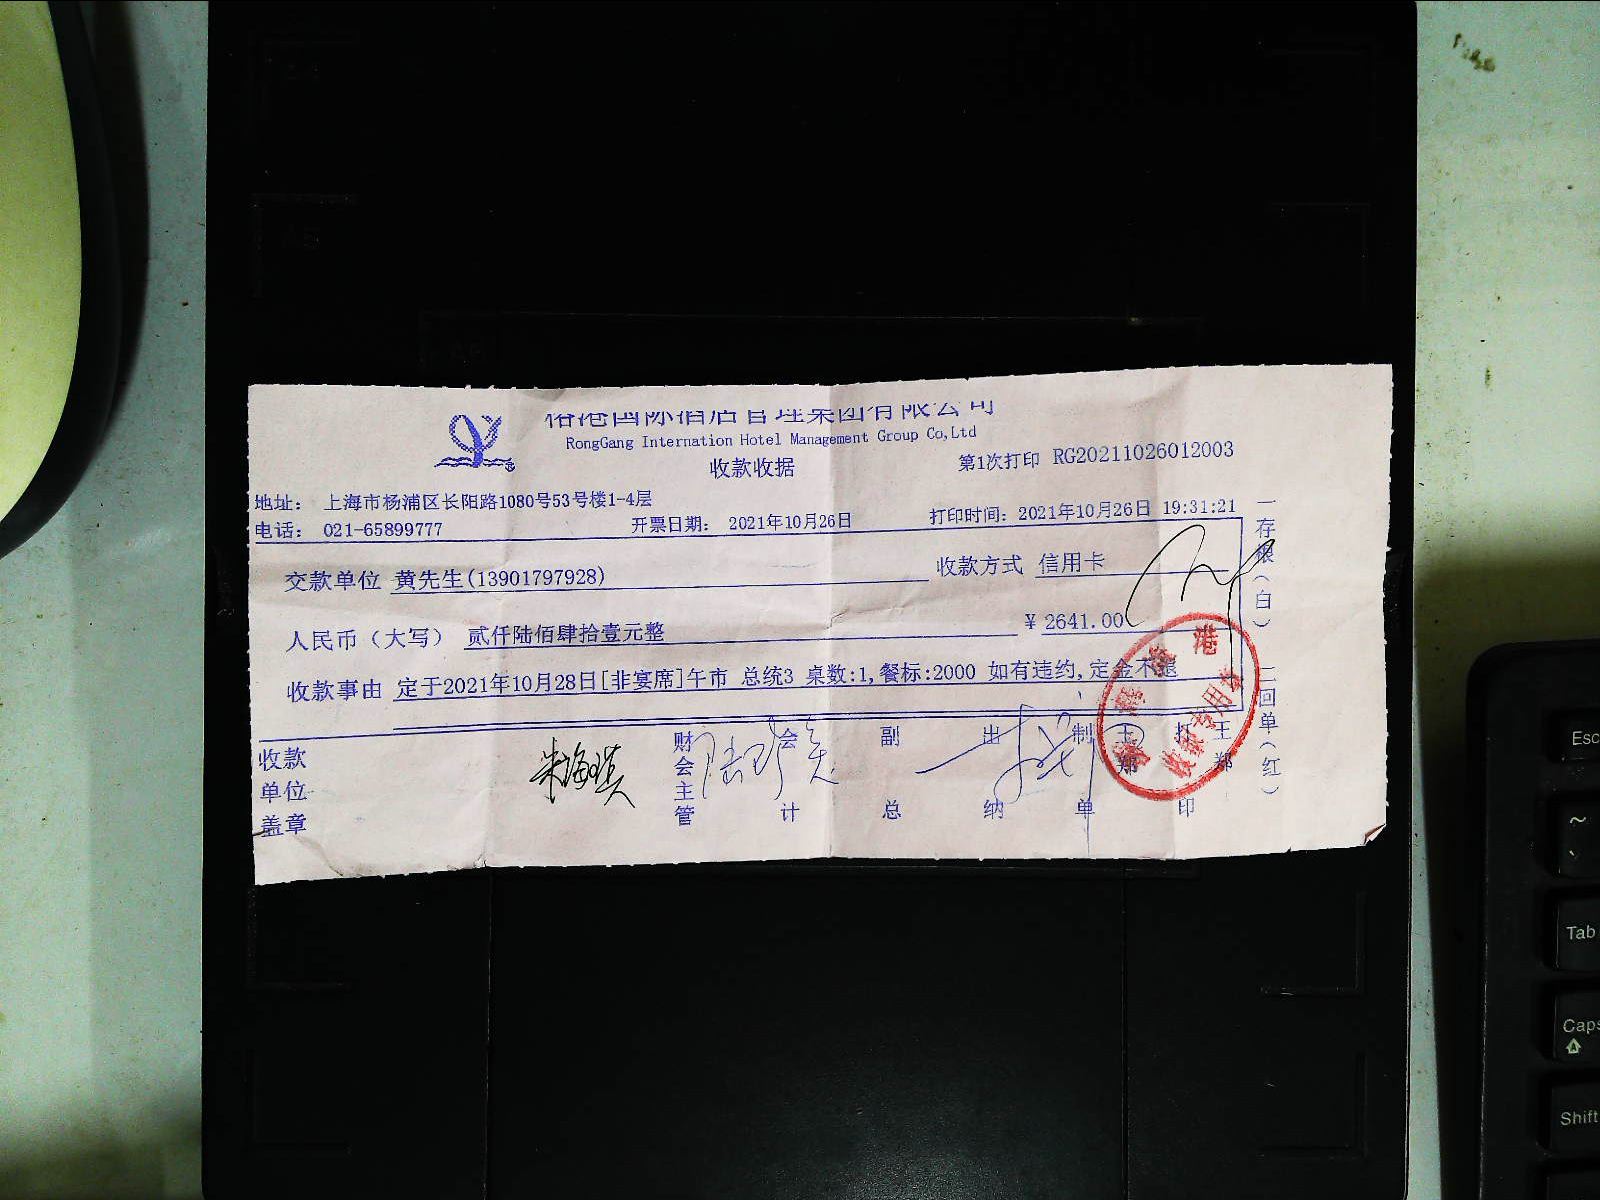 国际酒店管理集团有限公司
RongGang Internation Hotel Management Group Co,Ltd
收款收据
第1次打印 RG20211026012003
地址： 上海市杨浦区长阳路1080号53号楼1-4层
电话： 021-65899777 开票日期： 2021年10月26日 打印时间：2021年10月26日 19:31:21
交款单位 黄先生(13901797928) 收款方式 信用卡
人民币（大写） 贰仟陆佰肆拾壹元整 ¥2641.00
收款事由 定于2021年10月28日[非宴席]午市 总统3 桌数:1,餐标:2000 如有违约,定金不退
收款单位盖章
朱海瑛
财会主管
会计
副总
出纳
制单
王郑
打印
王郑
一存根（白）
二回单（红）
港
收款专用章
Esc
~
Tab
Caps
Shift
A5